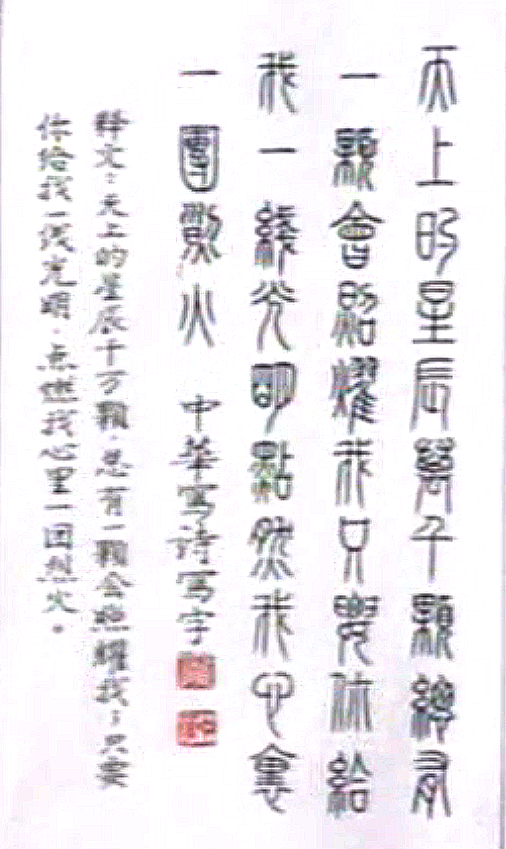 天上的星辰萬千顆總有
一顆會照耀我只要你給
我一綫光明點然我心裏
一團烈火 中華寫詩寫字
释文：天上的星辰千万颗，总有一颗会照耀我；只要
你给我一线光明，点燃我心里一团烈火。